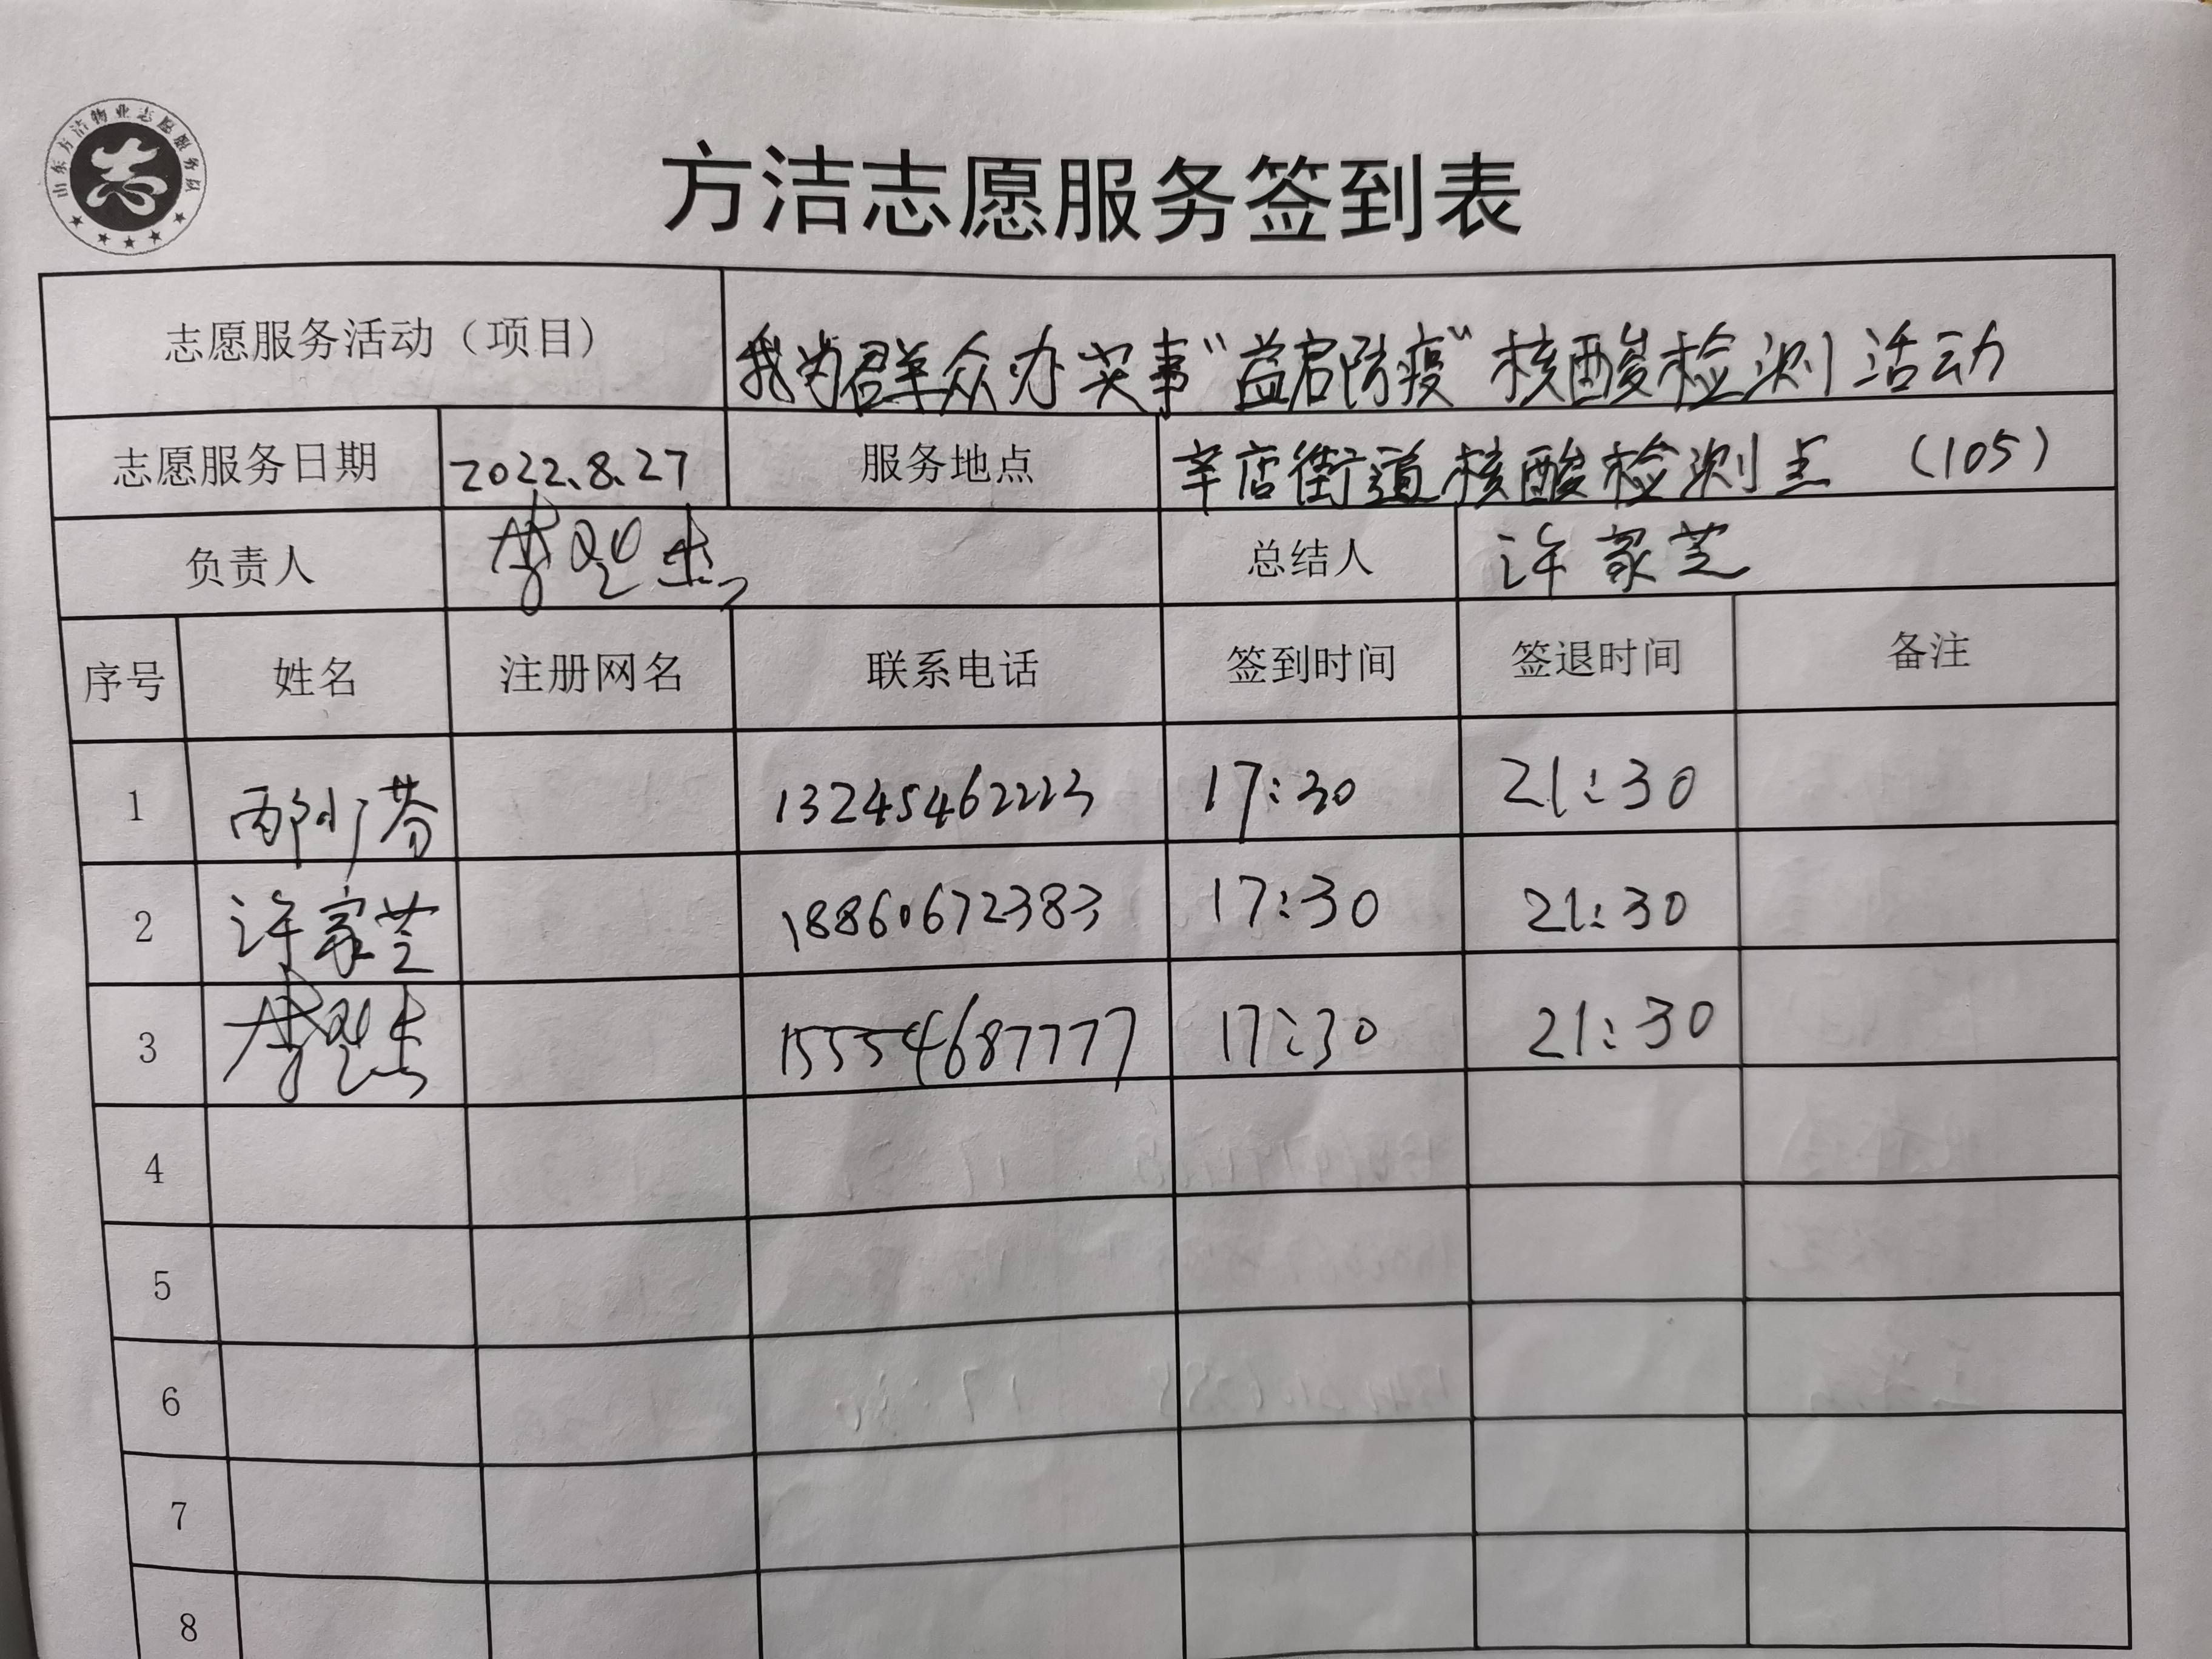 山东方洁物业志愿服务队
方洁志愿服务签到表
志愿服务活动（项目） 我为群众办实事“益启防疫”核酸检测活动
志愿服务日期 2022.8.27 服务地点 辛店街道核酸检测点（105）
负责人 总结人 许家芝
序号 姓名 注册网名 联系电话 签到时间 签退时间 备注
1 13245462223 17:30 21:30
2 许家芝 18860672383 17:30 21:30
3 15554687777 17:30 21:30
4
5
6
7
8